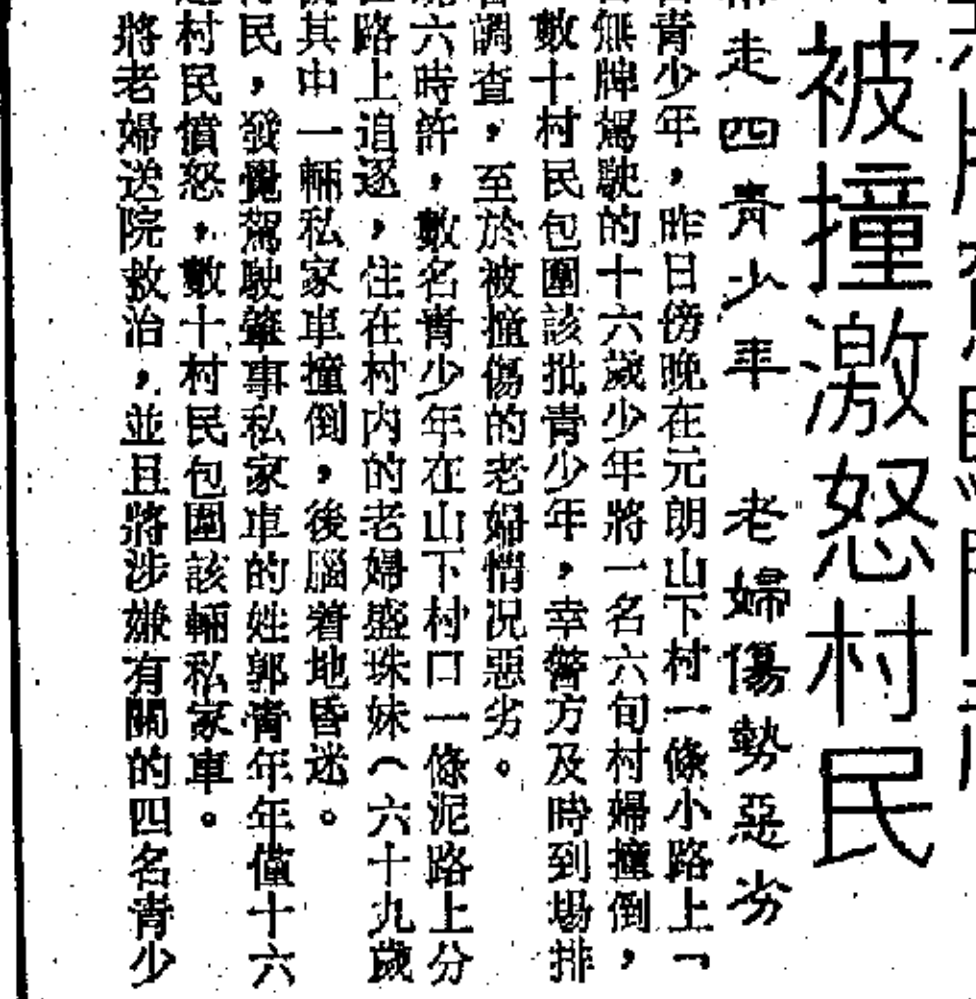 被撞激怒村民
走四青少年 老婦傷勢惡劣
青少年，昨日傍晚在元朗山下村一條小路上「
無牌駕駛的十六歲少年將一名六旬村婦撞倒，
數十村民包圍該批青少年，幸警方及時到場排
調查，至於被撞傷的老婦情况惡劣。
六時許，數名青少年在山下村口一條泥路上分
路上追逐，住在村内的老婦盛珠妹（六十九歲
其中一輛私家車撞倒，後腦着地昏迷。
民，發覺駕駛肇事私家車的姓郭青年年僅十六
村民憤怒，數十村民包圍該輛私家車。
將老婦送院救治，並且將涉嫌有關的四名青少